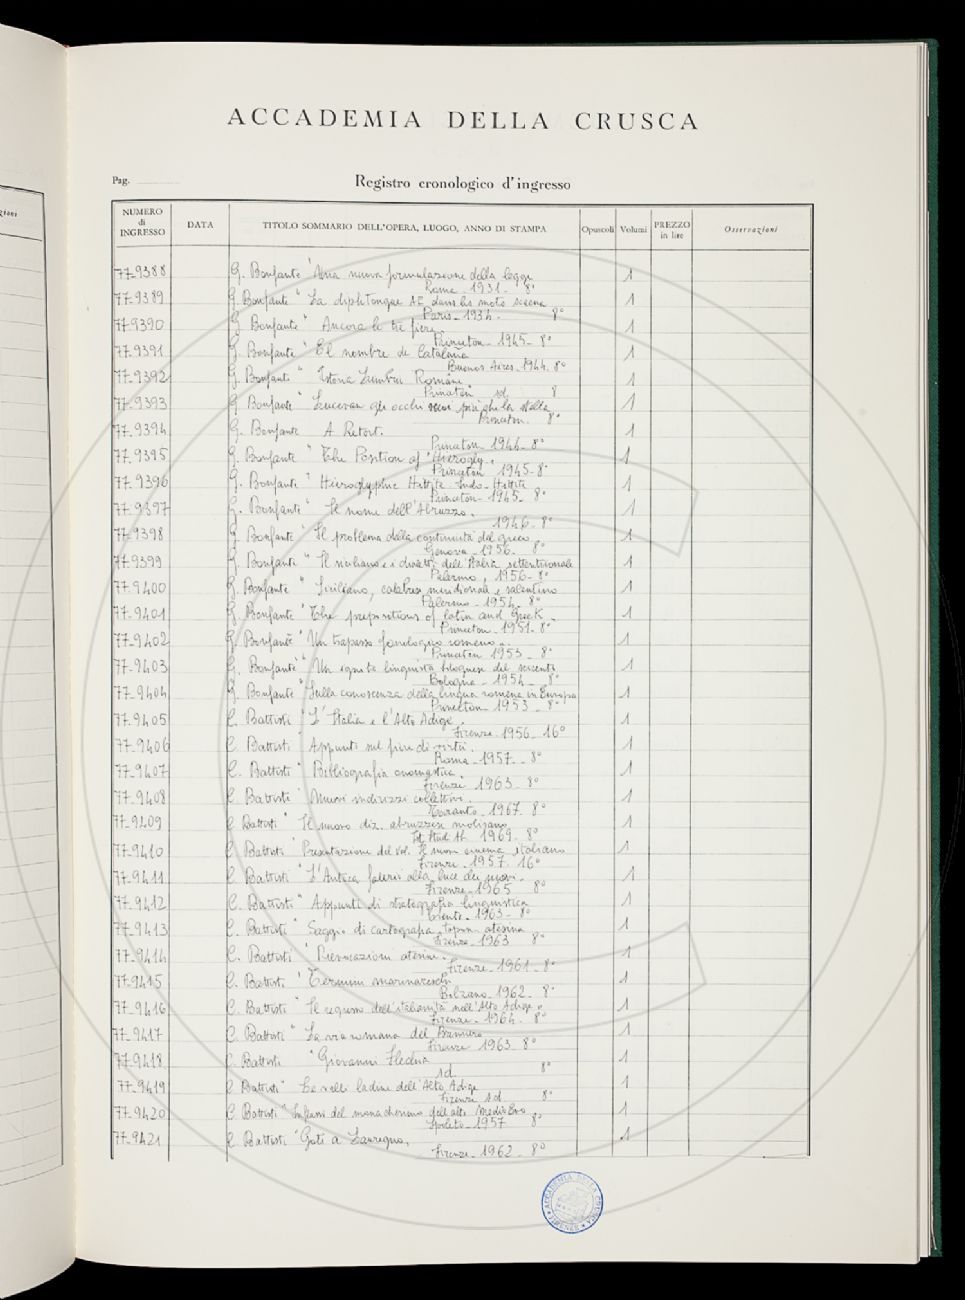 ACCADEMIA DELLA CRUSCA
Pag.
Registro cronologico d'ingresso
NUMERO di INGRESSO DATA TITOLO SOMMARIO DELL'OPERA, LUOGO, ANNO DI STAMPA Opuscoli Volumi PREZZO in lire Osservazioni
77-9388 G. Bonfante "Una nuova formulazione della legge 1
Roma - 1931 - 8°
77-9389 G. Bonfante " La diphtongue AE dans les mots 1
Paris - 1934 - 8°
77-9390 G. Bonfante " Ancora le tre fiere 1
Princeton - 1945 - 8°
77-9391 G. Bonfante " El nombre de Cataluña 1
Buenos Aires - 1944. 8°
77-9392 G. Bonfante " Romani. 1
Princeton sd 8
77-9393 G. Bonfante " Lucevan gli occhi suoi più che la stella 1
Princeton. 8°
77-9394 G. Bonfante A Retort. 1
Princeton 1944 - 8°
77-9395 G. Bonfante " The Position of "Hierogly. 1
Princeton 1945 - 8°
77-9396 G. Bonfante " Hieroglyphic Hittite Indo-Hittite 1
Princeton - 1945 - 8°
77-9397 G. Bonfante " Il nome dell'Abruzzo. 1
1946 - 8°
77-9398 G. Bonfante " Il problema della continuità del greco 1
Genova - 1956. 8°
77-9399 G. Bonfante " Il siciliano e i dialetti dell'Italia settentrionale 1
Palermo, 1956 - 8°
77-9400 G. Bonfante " Siciliano, calabrese meridionale e salentino 1
Palermo - 1954 - 8°
77-9401 G. Bonfante "The prepositions of latin and Greek. 1
Princeton - 1951 - 8°
77-9402 G. Bonfante "Un trapasso fonologico romeno 1
Princeton 1953 - 8°
77-9403 G. Bonfante "Un ignito linguista bolognese del seicento 1
Bologna - 1954 - 8°
77-9404 G. Bonfante "Sulla conoscenza della lingua romena in Europa 1
Princeton 1953 - 8°
77-9405 C. Battisti "L'Italia e l'Alto Adige. 1
Firenze - 1956 - 16°
77-9406 C. Battisti "Appunti sul fiore di virtù. 1
Roma - 1957 - 8°
77-9407 C. Battisti " Bibliografia onomastica. 1
Firenze 1963 - 8°
77-9408 C. Battisti " Nuovi indirizzi collettivi. 1
Taranto - 1967. 8°
77-9409 C. Battisti " Il nuovo diz. abruzzese molisano 1
1969. 8°
77-9410 C. Battisti " Presentazione del vol. Il nuovo cinema italiano 1
Firenze - 1957. 16°
77-9411 C. Battisti "L'Antica Faleri alla luce dei nuovi. 1
Firenze - 1965 8°
77-9412 C. Battisti " Appunti di stratografia linguistica 1
Trento - 1963 - 8°
77-9413 C. Battisti " Saggio di cartografia topon. atesina 1
Firenze - 1963 8°
77-9414 C. Battisti " atesine. 1
Firenze - 1961 - 8°
77-9415 C. Battisti " Termini marinareschi 1
Bolzano - 1962 - 8°
77-9416 C. Battisti " Il regresso dell'italianità nell'Alto Adige. 1
Firenze - 1964. 8°
77-9417 C. Battisti " La via romana del Brennero 1
Firenze 1963 - 8°
77-9418 C. Battisti " Giovanni Flechia 1
sd. 8°
77-9419 C. Battisti " Le valli ladine dell'Alto Adige 1
Firenze sd 8°
77-9420 C. Battisti " Influssi del monachesimo dell'alto Medio Evo 1
Spoleto - 1957 8°
77-9421 C. Battisti "Goti a Lauregno. 1
Firenze - 1962 - 8°
ACCADEMIA DELLA CRUSCA
FIRENZE